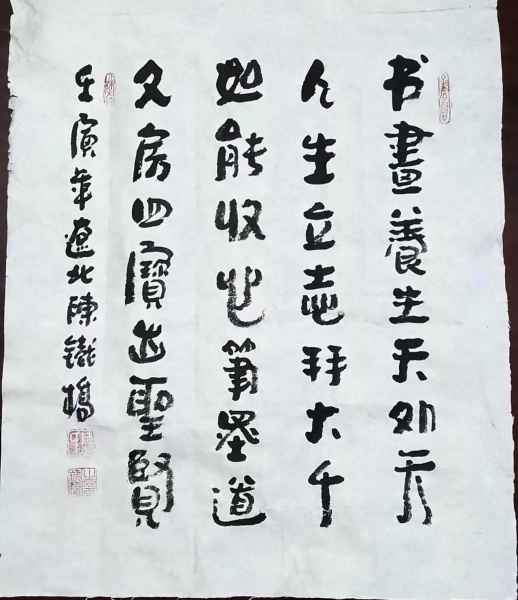 书畫養生天外天
人生立志拜大千
如能收筆墨道
文房四寶出聖賢
壬寅年遼北陳鐵橋